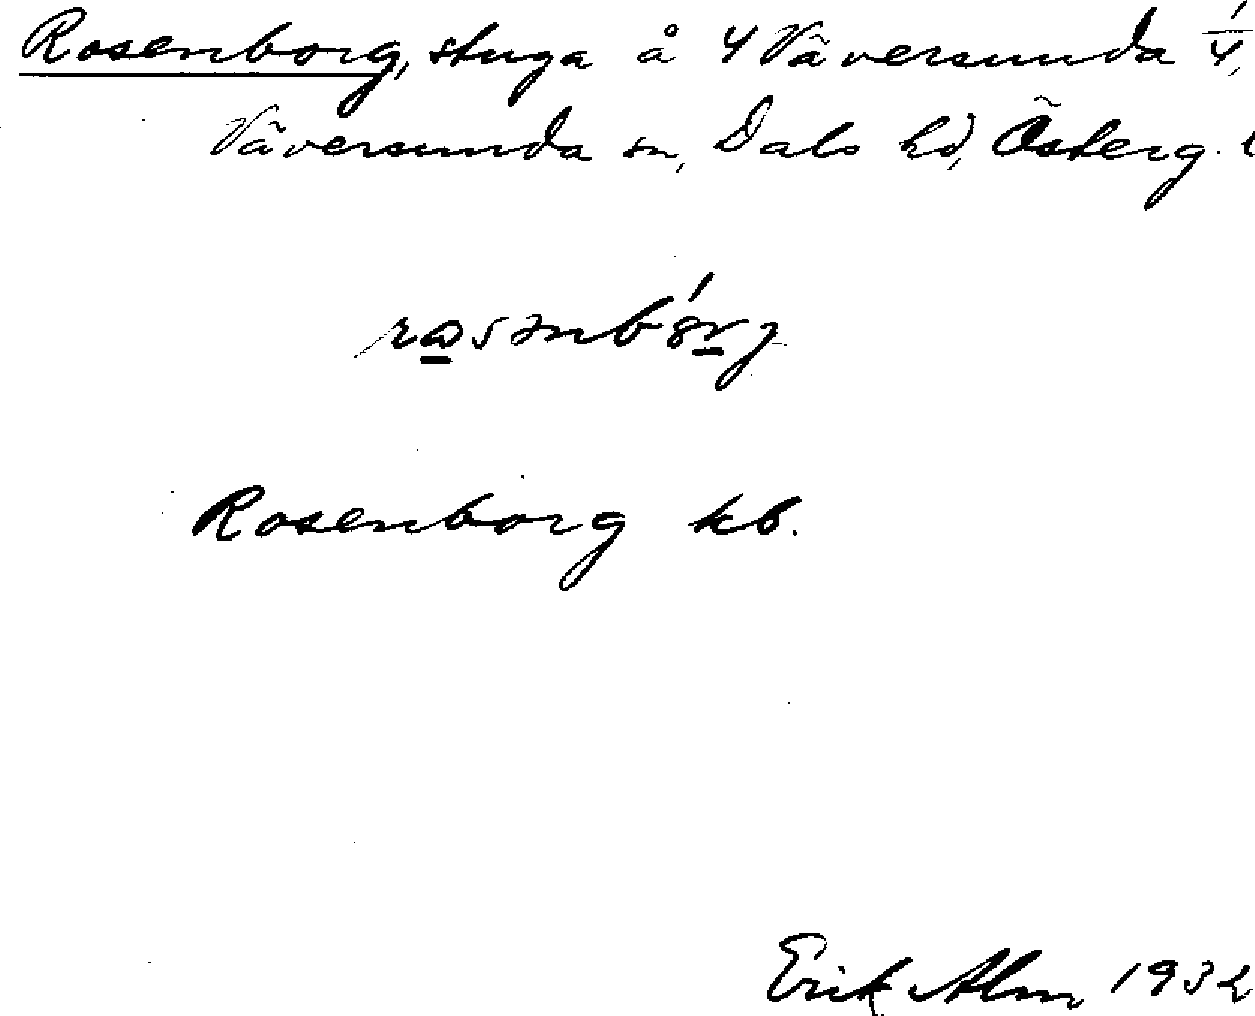 Rosenborg, stuga å 4 Väversunda 1/4,
Väversunda sn, Dals hd, Österg. l
Rosenborg kb.
Erik Alm 1932